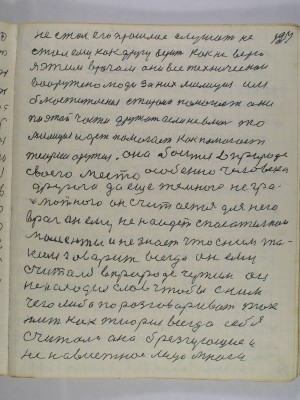 127
не стал его прошлое слушать не
стал ему как другу верит как не верю
я этим врачам они все технически
вооружено люди за них милиция или
бла стараюсь помочь они
по этой части другим
милиция идет помогает как помогает
теории другим. она боится в природе
своего место особенно человека
другого да еще темного негра
мотного он считается для него
враг он ему не найдет спасательном
моменте и не знает что с ним та
ком говорит всегда он ему
считал в природе чужим он
не находил слов чтобы с ним
чего либо поразговаривать так
как теория всегда себя
считала она брезгующие и
не навистное лицо многи